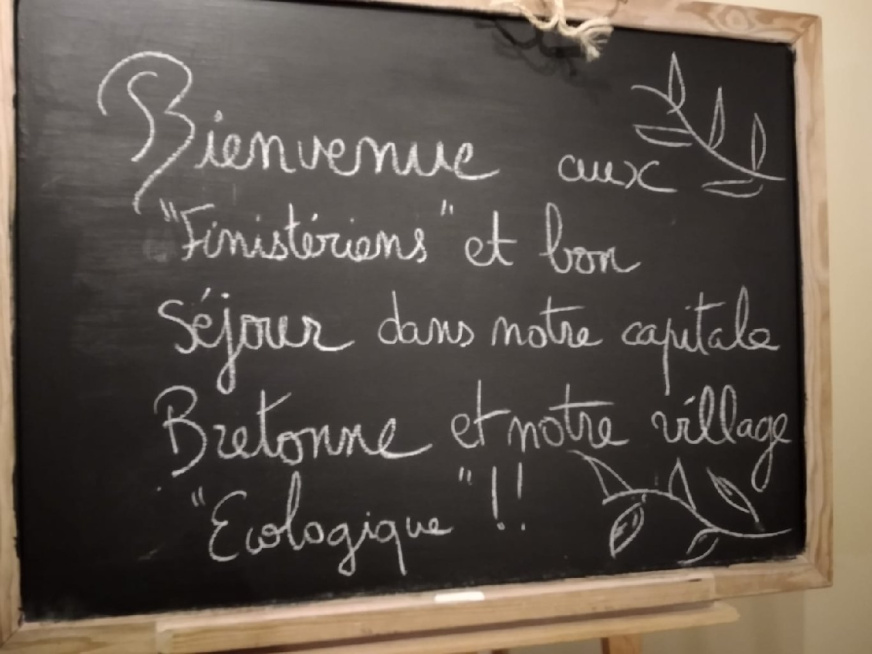 Bienvenue aux
"Finistériens" et bon
séjour dans notre capitale
Bretonne et notre village
"Ecologique" !!